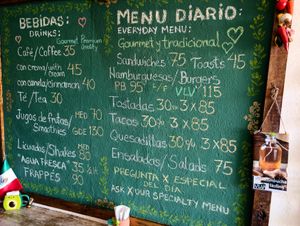 BEBIDAS:
DRINKS:
Gourmet Premium
Quality
Café/Coffee 35
con crema/with cream 45
con canela/cinnamon 40
Té/Tea 30
Jugos de frutas/ MED 70
Smoothies GDE 130
Licuados/Shakes 80
"AGUA FRESCA" 35
FRAPPÉS 90
MENU DIARIO:
EVERYDAY MENU:
Gourmet y tradicional
Sandwiches 75 Toasts 45
Hamburguesas/Burgers
PB 95 F/F VLV 115
Tostadas 30 3 x 85
Tacos 30 3 x 85
Quesadillas 30 3 x 85
Ensaladas/Salads 75
PREGUNTA X ESPECIAL
DEL DIA
ASK X OUR SPECIALTY MENU